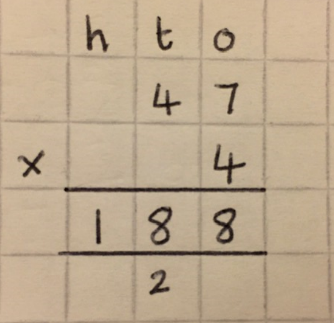 h t o
4 7
x 4
1 8 8
2